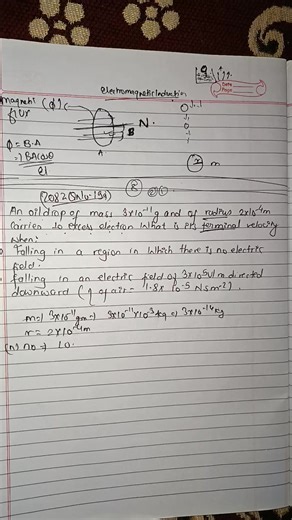 Electromagnetic Induction
Date
Page
magneti (ϕ)
flur
N.
B
A
ϕ = B.A
= BA cosθ
m
An oil drop of mass 3x10⁻¹¹g and of radius 2x10⁻⁴m
carries 10 excess electron What is its terminal velocity
when:
Falling in a region in which there is no electric
field.
Falling in an electric field of 3x10⁵ directed
downward (η of air = 1.8x 10⁻⁵ Nsm⁻²).
m = 3x10⁻¹¹gm = 3x10⁻¹¹x10⁻³kg = 3x10⁻¹⁴kg
r = 2x10⁻⁴m
(n) no = 10.